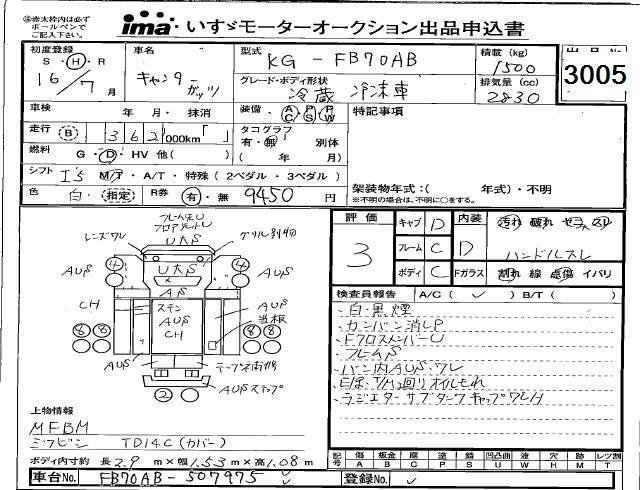 ㊟赤太枠内は必ず
ボールペンで
ご記入下さい。
ima いすゞモーターオークション出品申込書
初度登録
S・H・R
16/7月
車名
キャンター
ガッツ
型式
KG-FB70AB
グレード・ボディ形状
冷蔵冷凍車
積載(kg)
1500
排気量(cc)
2830
出品No
3005
車検 年・月・抹消
走行 B 362,000km「 」
燃料 G・D・HV 他( )
シフト M/T・A/T・特殊(2ペダル・3ペダル)
色 白・指定
R券 有・無 9450円
装備 AC PS PW
タコグラフ
有・無 別体
( 年 月)
特記事項
架装物年式:( 年式)・不明
※不明の場合は、不明に○をする。
評価
3
キャブ D
フレーム C
ボディ C
内装 D
Fガラス
汚れ 破れ
ハンドルスレ
割れ 線 点傷 イバリ
検査員報告 A/C( ✓ ) B/T( )
・白・黒煙
・カンバン消しP
・FクロスメンバーU
・フレームS
・バン内AUS・ワレ
・E/ぼ・T/M2回リオイルもれ
・ラジエターサブタンクキャップワレH
レンズワレ
AUS
CH
AUS
AUS
当板
ステン
AUS
CH
AUS
AUSステップ
④
④
⑧⑧
⑧⑧
②
上物情報
MFBM
ミツビシ TD14C(カバー)
ボディ内寸約 長2.9m×幅1.53m×高1.08m
車台No. FB70AB-507975
登録No.
記号 傷A 板金B 腐C 塗P 錆S 凹凸曲U 波W 穴H 跡M レツ割T